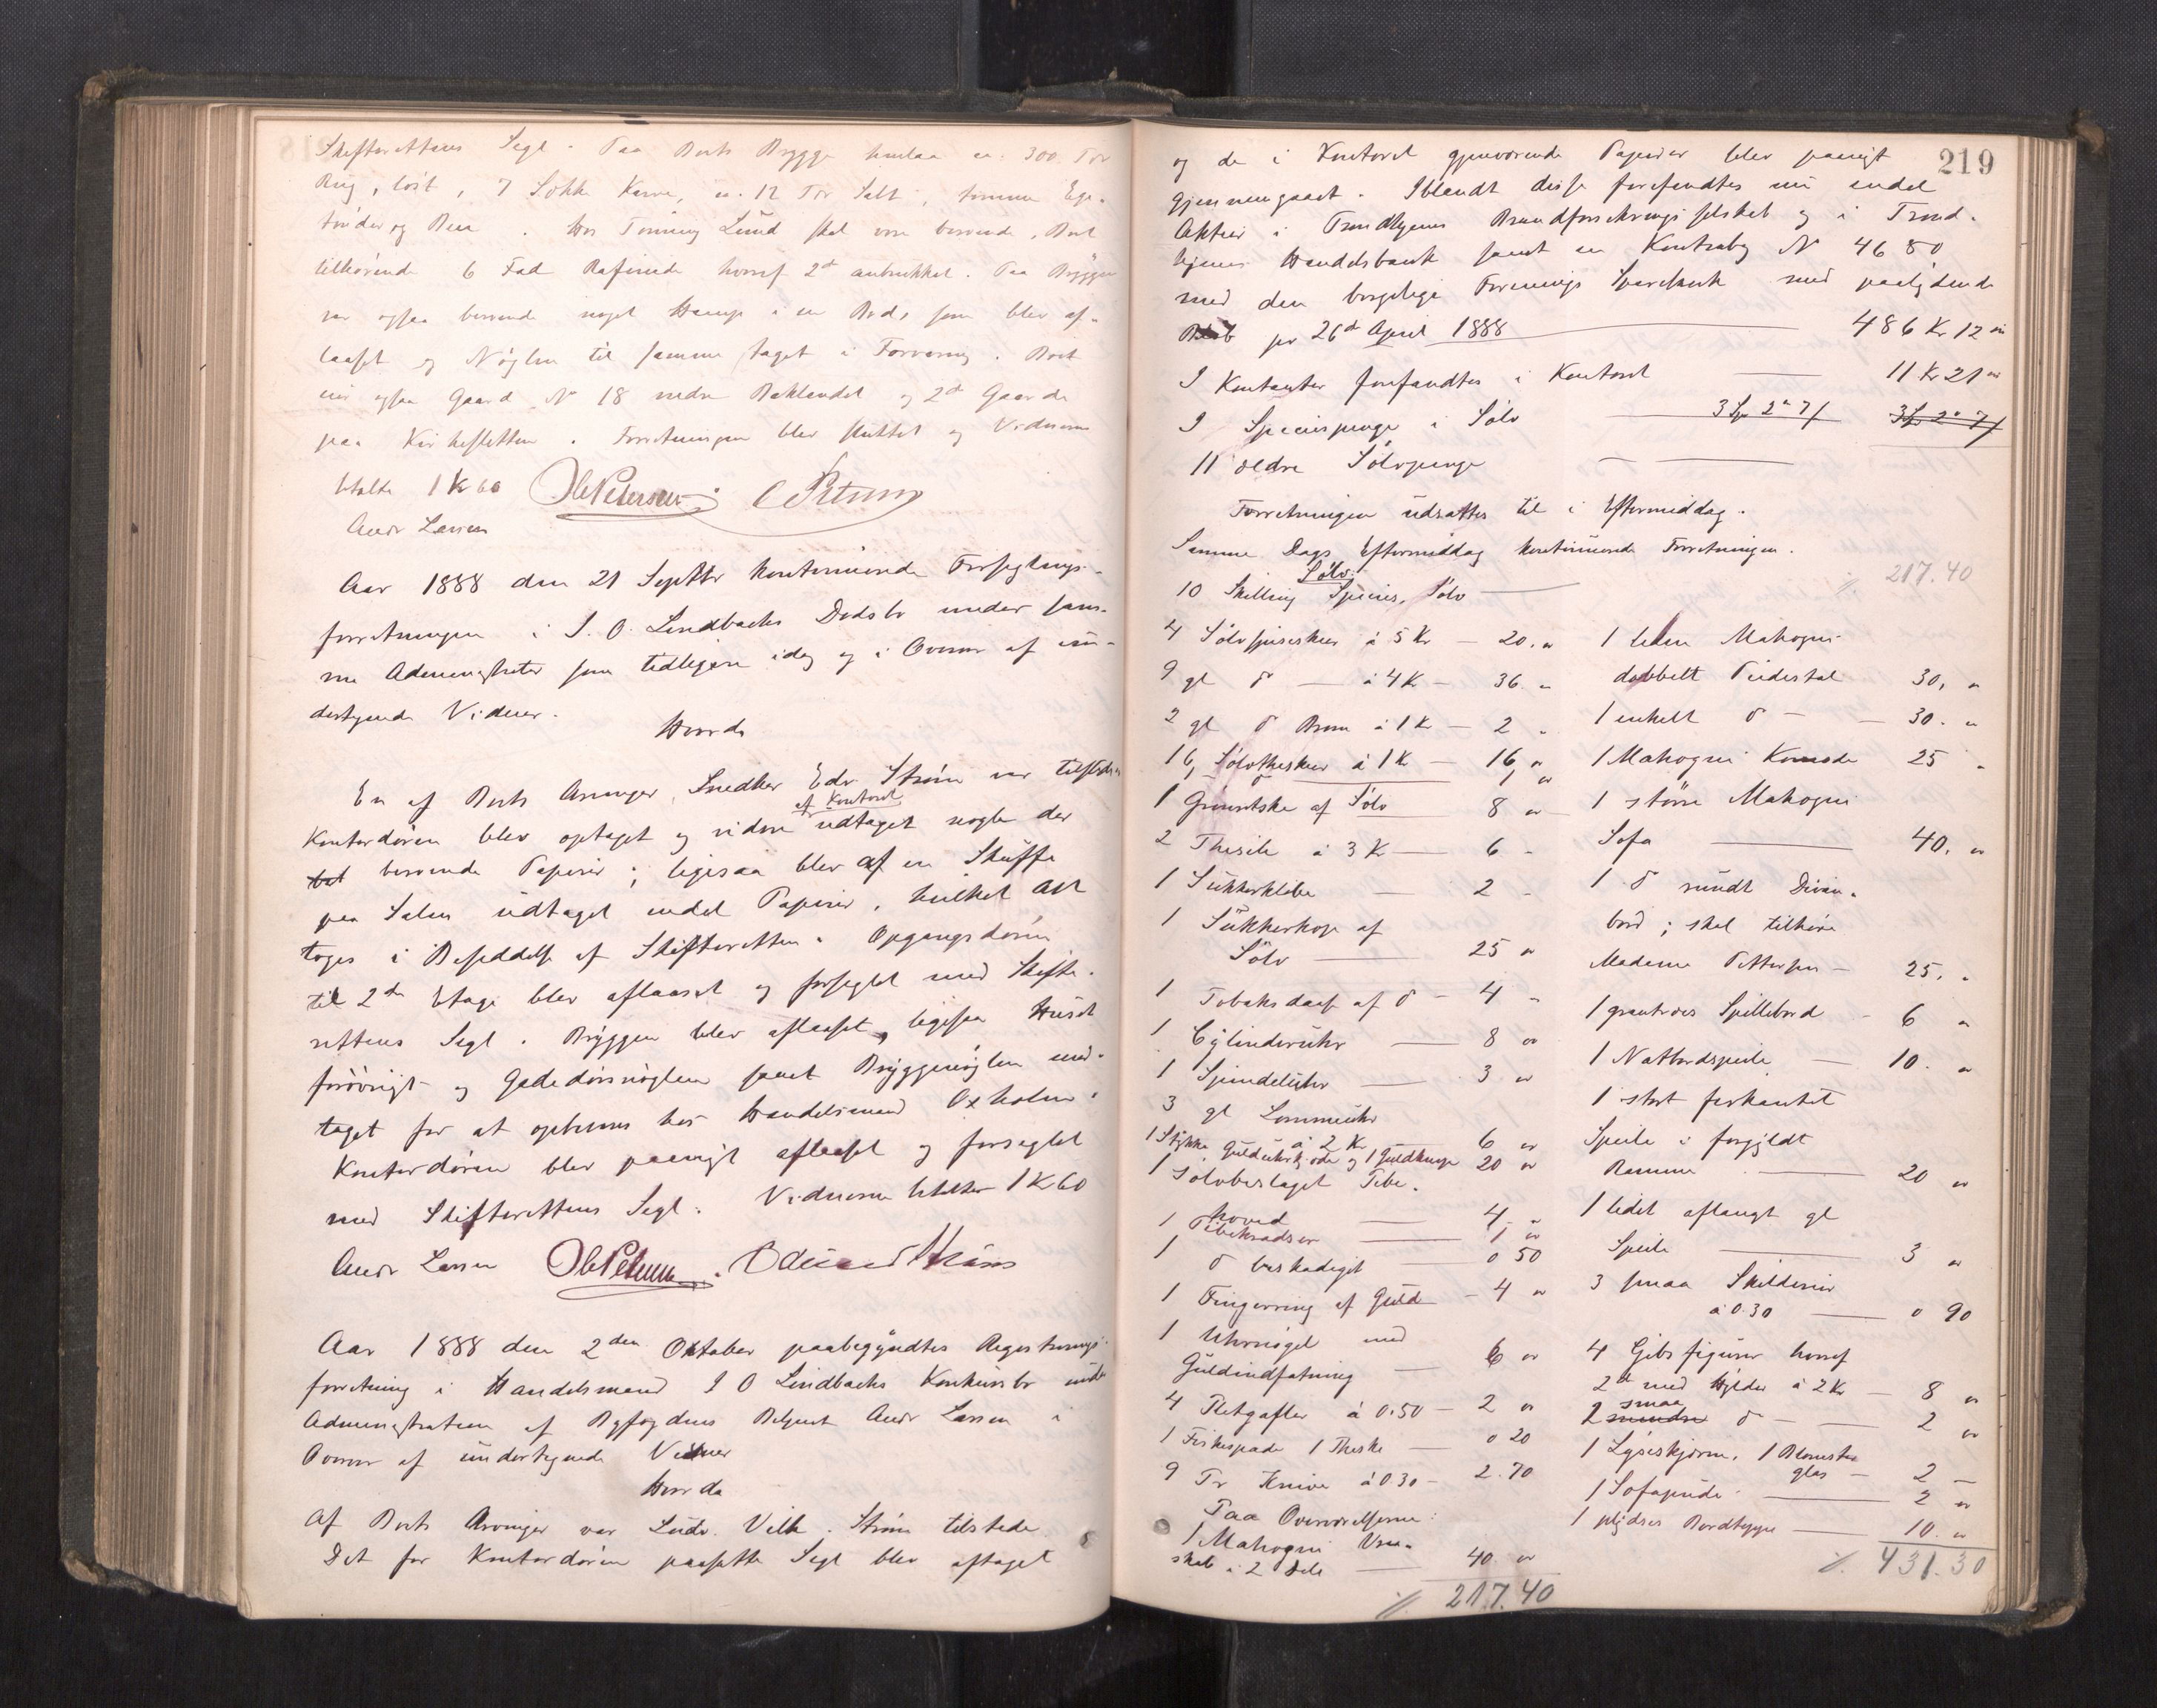 Skifterettens Segl. Paa Boets Brygge henlaa ca. 300 Tdr
Rug, løst, 7 Sække Karve, ca. 12 Tdr Salt, tomme Ege-
tønder og . Hos Tønning Lund skal være beroende, Boet
tilhørende 6 Fad Rafinade hvoraf 2de anbrukket. Paa Bryggen
var ogsaa beroende noget Hamp i en Bod, som blev af-
laaset og Nøglen til samme taget i Forvaring. Boet
eier ogsaa Gaard No 18 nedre Baklandet og 2de Gaarde
paa Kirkesletten. Forretningen blev sluttet og Vidnerne
betalte 1 Kr 60 Ole Petersen C Petersen
Andr Larsen
Aar 1888 den 21 Septbr kontinuerede Forseglings-
forretningen i J. O. Lindbachs Dødsbo under sam-
me Administrator som tidligere idag og i Overvær af un-
dertegnede Vidner.
Hvorda
En af Boets Arvinger, Snedker Edv. Strøm var tilstede
Kontordøren blev optaget og videre af Kontoret udtaget nogle der
beroende Papirer; ligesaa blev af en Skuffe
paa Salen udtaget endel Papirer, hvilket Alt
toges i Besiddelse af Skifteretten. Opgangsdøren
til 2den Etage blev aflaaset og forseglet med Skifte-
rettens Segl. Bryggen blev aflaaset, ligesaa Huset
forøvrigt og Gadedørsnøglen samt Bryggenøglen med-
taget for at opbevares hos Handelsmand Oxholm.
Kontordøren blev paanyt aflaaset og forseglet
med Skifterettens Segl. Vidnerne betaltes 1 Kr 60
Andr Larsen Ole Petersen. Edvard Strøm
Aar 1888 den 2den Oktober paabegyndtes Registrerings-
forretning i Handelsmand J O Lindbachs Konkursbo under
Administration af Byfogdens Betjent Andr Larsen i
Overvær af undertegnede Vidner
Hvorda
Af Boets Arvinger var Ludv. Vilh. Strøm tilstede
Det for Kontordøren paasatte Segl blev aftaget
219
og de i Kontoret gjenværende Papirer blev paanyt
gjennemgaaet. Iblandt disse forefandtes nu endel
Aktier i Trondhjems Brandforsikringsselskab og i Trond-
hjems Handelsbank samt en Kontrabog No 4680
med den borgerlige Forenings Sparebank med paalydende
Beløb pr 26de April 1888 486 Kr 12 øre
I Kontanter forefandtes i Kontoret 11 Kr 21 øre
I Speciespenge i Sølv 3 Sp 2 " 7 / 3 Sp 2 " 7 /
11 ældre Sølvpenge
Forretningen udsattes til i Eftermiddag.
Samme Dags Eftermiddag kontinuerede Forretningen.
Sølv:
10 Skilling Species, Sølv
4 Sølvspiseskeer à 5 Kr — 20. "
9 gl do — à 4 Kr — 36. "
2 gl do Børne à 1 Kr — 2 "
16 Sølvtheskeer à 1 Kr — 16 "
1 do 1 "
1 Grønsetske af Sølv 8 "
2 Thesile à 3 Kr — 6 "
1 Sukkerklibe — 2 "
1 Sukkerkop af
Sølv — 25 "
1 Tobaksdaase af do — 4 "
1 Cylinderuhr — 8 "
1 Spindeluhr — 3 "
3 gl Lommeuhr
à 2 Kr 6 "
1 Stykke Gulduhrkjæde og 1 Guldknap 20 "
1 Sølvbeslaget Pibe-
hoved — 4 "
1 Pibekradser — 1 "
1 do beskadiget — 0 50
1 Fingerring af Guld — 4 "
1 Uhrnøgel med
Guldindfatning — 6 "
4 Pletgafler à 0.50 — 2 "
1 Fiskespade 1 Theske — 0 20
9 Pr Knive à 0 30 — 2.70
Paa Overværelserne:
1 Mahogni
skab i 2 Dele — 40 "
% 217.40
% 217.40
1 liden Mahogni
dobbelt Piedestal 30, "
1 enkelt do — — 30. "
1 Mahogni Komode 25 "
1 større Mahogni
Sofa — 40. "
1 do rundt Divan-
bord; skal tilhøre
Madame Pettersen — 25. "
1 Spillebord — 6 "
1 Natbordspeile — 10. "
1 stort firkantet
Speile i forgyldt
Ramme — 20 "
1 lidet aflangt gl
Speile — 3 "
3 smaa Skilderier
à 0.30 — 0 90
4 Gibsfigurer hvoraf
2de med Hylder à 2 Kr — 8 "
2 smaa mindre do — — 2 "
1 Lyseskjerm, 1 Blomster
glas — 2 —
1 Sofapude — 2 "
1 plydses Bordteppe — 10. "
% 431.30